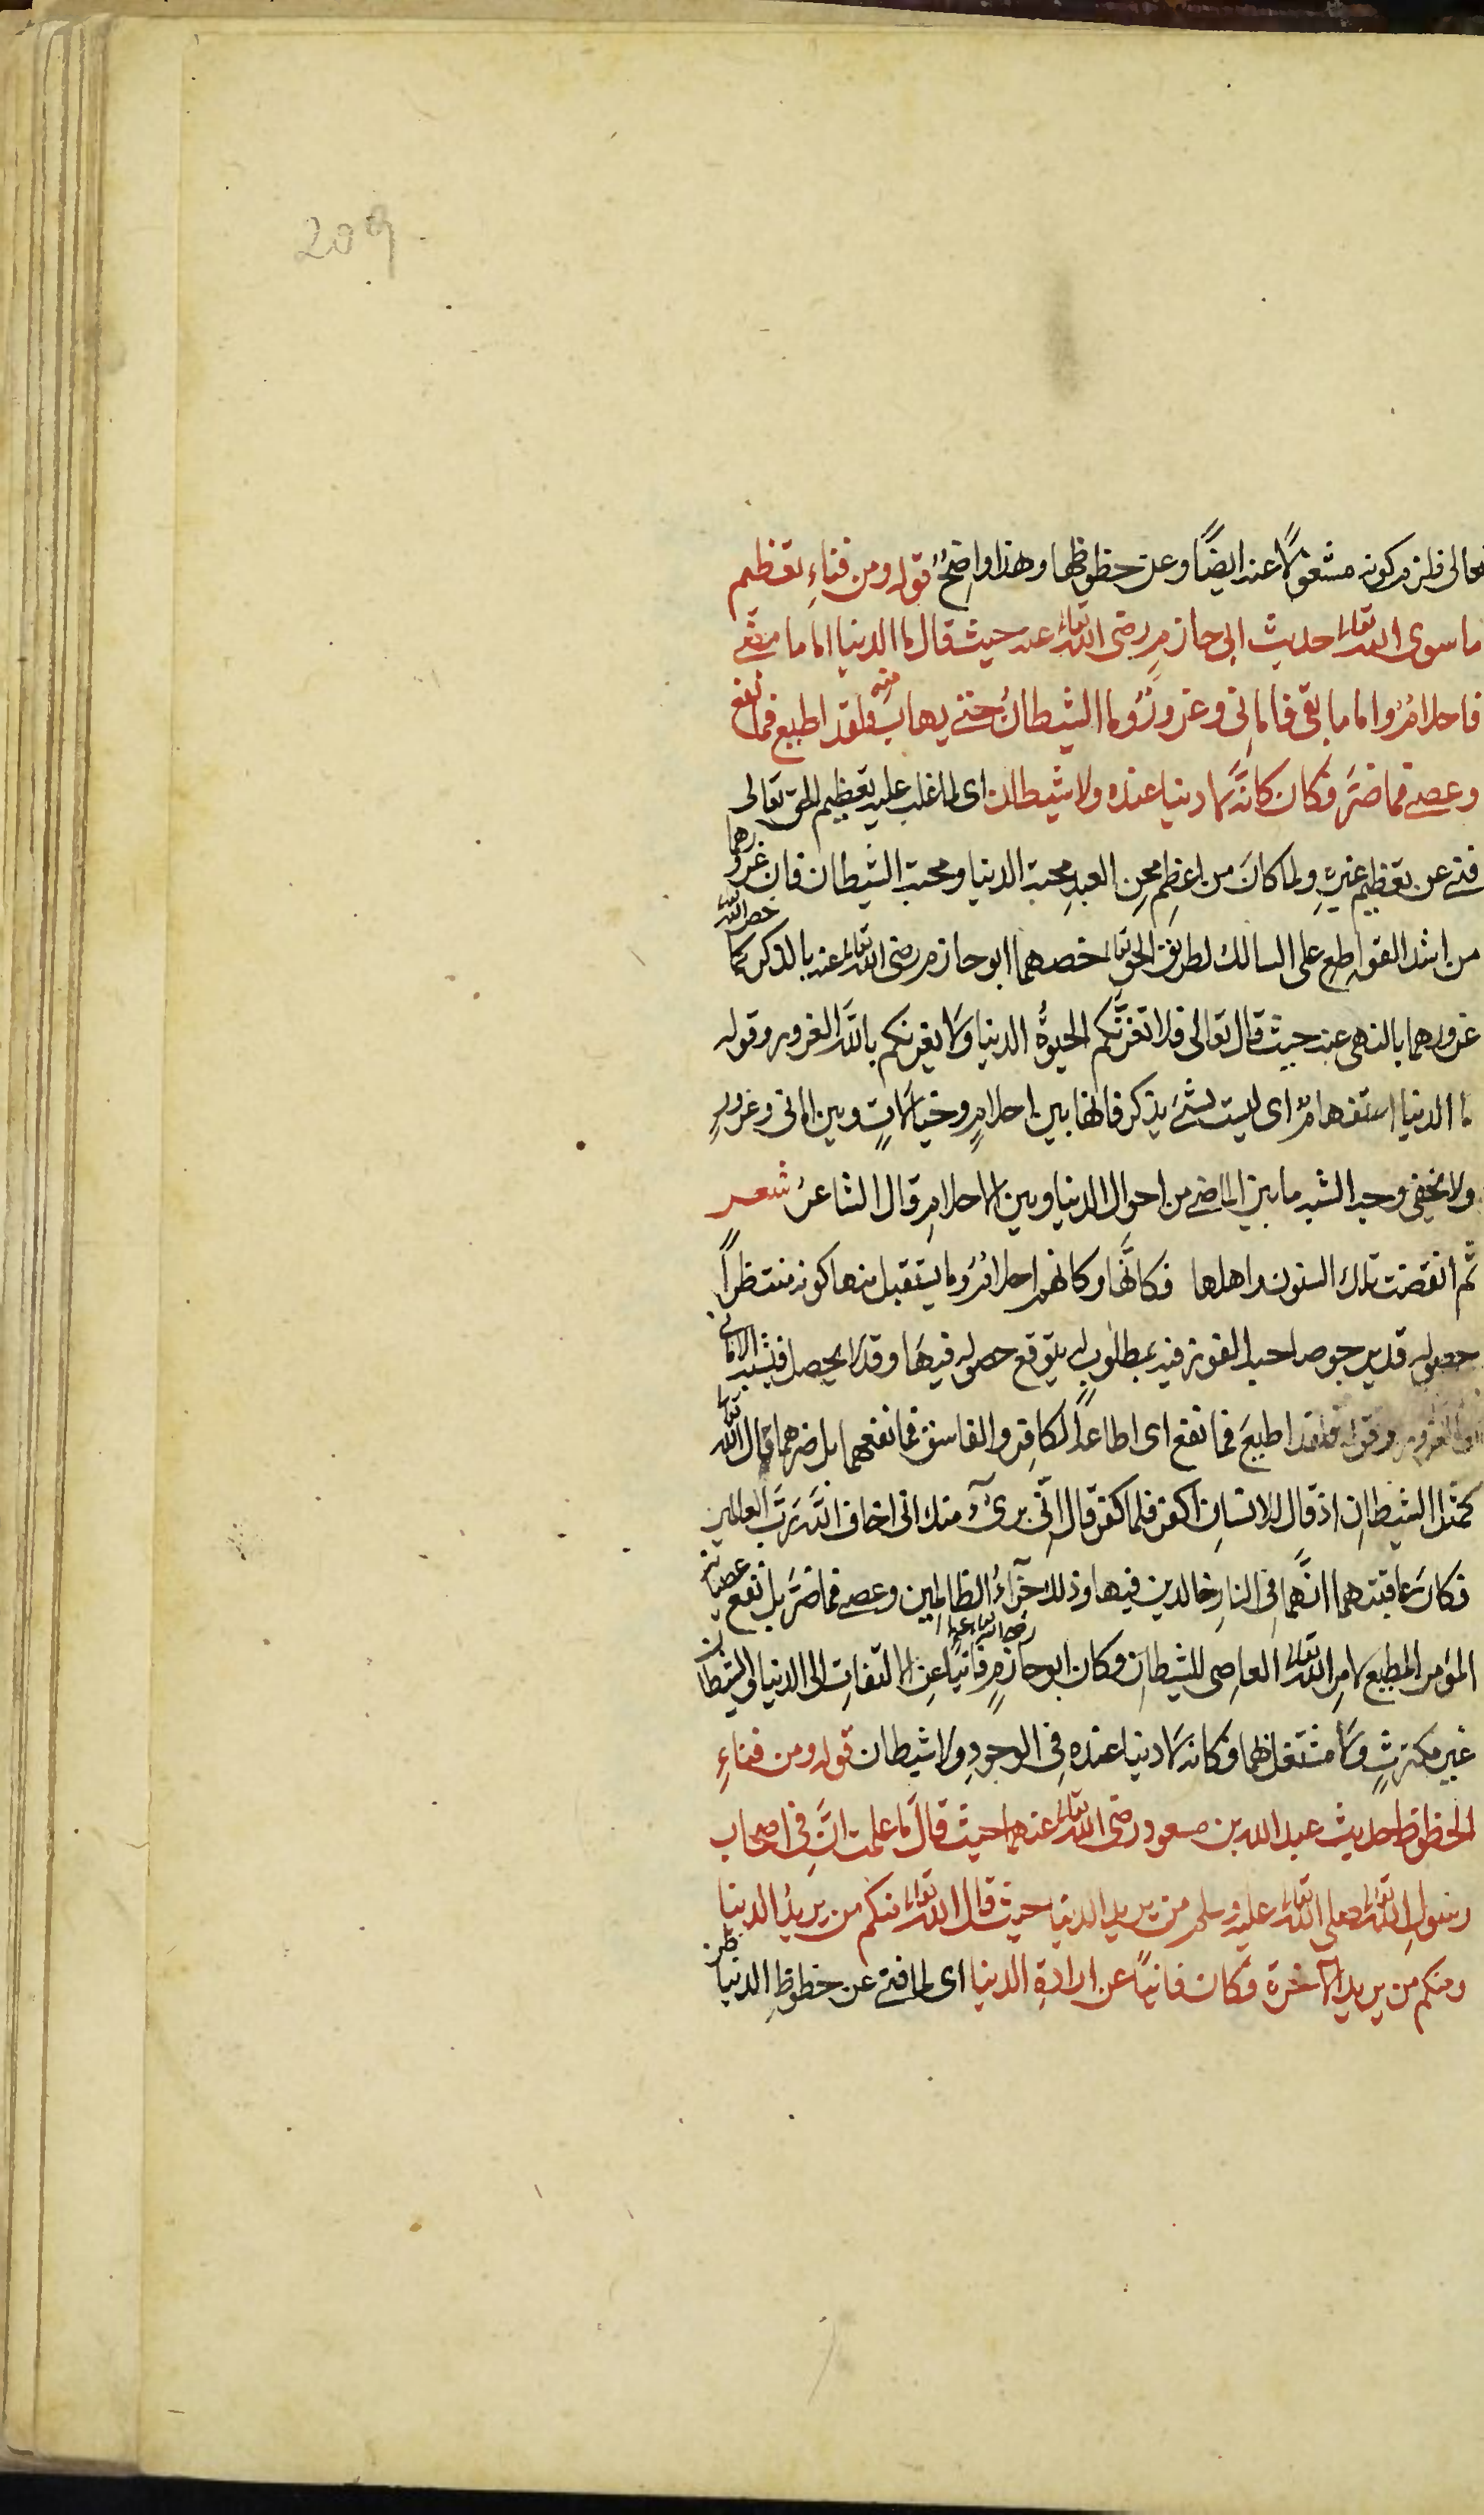 209
تعالى فلزم كونه مشغولًا عنه ايضًا وعن حظوظها وهذا واضحٌ قوله ومن فناءِ تعظيم
ما سوى الله تعالى حديث ابى حازمٍ رضى الله تعالى عنه حيث قال ما الدنيا اما ما مضى
فاحلامٌ واما ما بقى فامانى وغرورٌ وما الشيطان حتى يهاب منه فلقد اطيع فما نفع
وعصى فما ضرَّ فكان كانَّه لا دنيا عنده ولا شيطان اى لما غلب عليه تعظيم الحق تعالى
فنى عن تعظيم غيرهِ ولما كانَ من اعظمِ محنِ العبدِ محبة الدنيا ومحبة الشيطان فان غرورهما
من اشد القواطع على السالك لطريق الحق تعالى خصهما ابو حازم رضى الله تعالى عنه بالذكر كما خص الله تعالى
غرورهما بالنهى عنه حيث قال تعالى فلا تغرَّنَّكم الحيوةُ الدنيا ولا يغرنكم باللّٰه الغرور وقوله
ما الدنيا استفهامٌ اى ليست بشئ يذكر فانها بين احلامٍ وخيالاتٍ وبين امانى وغرورٍ
ولا يخفى وجه الشبه ما بين الماضى من احوال الدنيا وبين الاحلامِ قال الشاعرُ شعر
ثم انقضت تلك السنون واهلها فكانَّها وكانهم احلامٌ وما يستقبل منها كونه منتظراً
حصوله قد يرجو صاحبه الفوز فيه بمطلوبٍ له يتوقع حصوله فيها وقد لا يحصل فيشبه الامانى
والغرور وقوله فلقد اطيعَ فما نفع اى اطاعهُ الكافر والفاسق فما نفعهما بل ضرهما قال الله تعالى
كمثل الشيطانِ اذ قال للانسانِ اكفر فلما كفر قال انِّى برىٓءٌ منك انى اخاف اللّٰه ربَّ العالمين
فكان عاقبتهما انَّهما فى النارِ خالدين فيها وذلك جزآءُ الظالمين وعصى فما ضرَّ بل نفع عصيانه
المؤمن المطيع لامرِ الله تعالى العاصى للشيطانِ وكان ابو حازمٍ رضى الله تعالى عنه فانيًا عن الالتفاتِ الى الدنيا والشيطان
غير مكترثٍ ولا مشتغل بهما فكانه لا دنيا عنده فى الوجودِ ولا شيطان قوله ومن فناءِ
الحظوظ حديث عبد الله بن مسعود رضى الله تعالى عنهما حيث قالَ ما علمت انَّ فى اصحاب
رسولِ الله تعالى صلى الله تعالى عليه وسلم من يريد الدنيا حيث قال الله تعالى منكم من يريدُ الدنيا
ومنكم من يريد الآخرة فكان فانيًا عن ارادةِ الدنيا اى لما فنى عن حظوظِ الدنيا